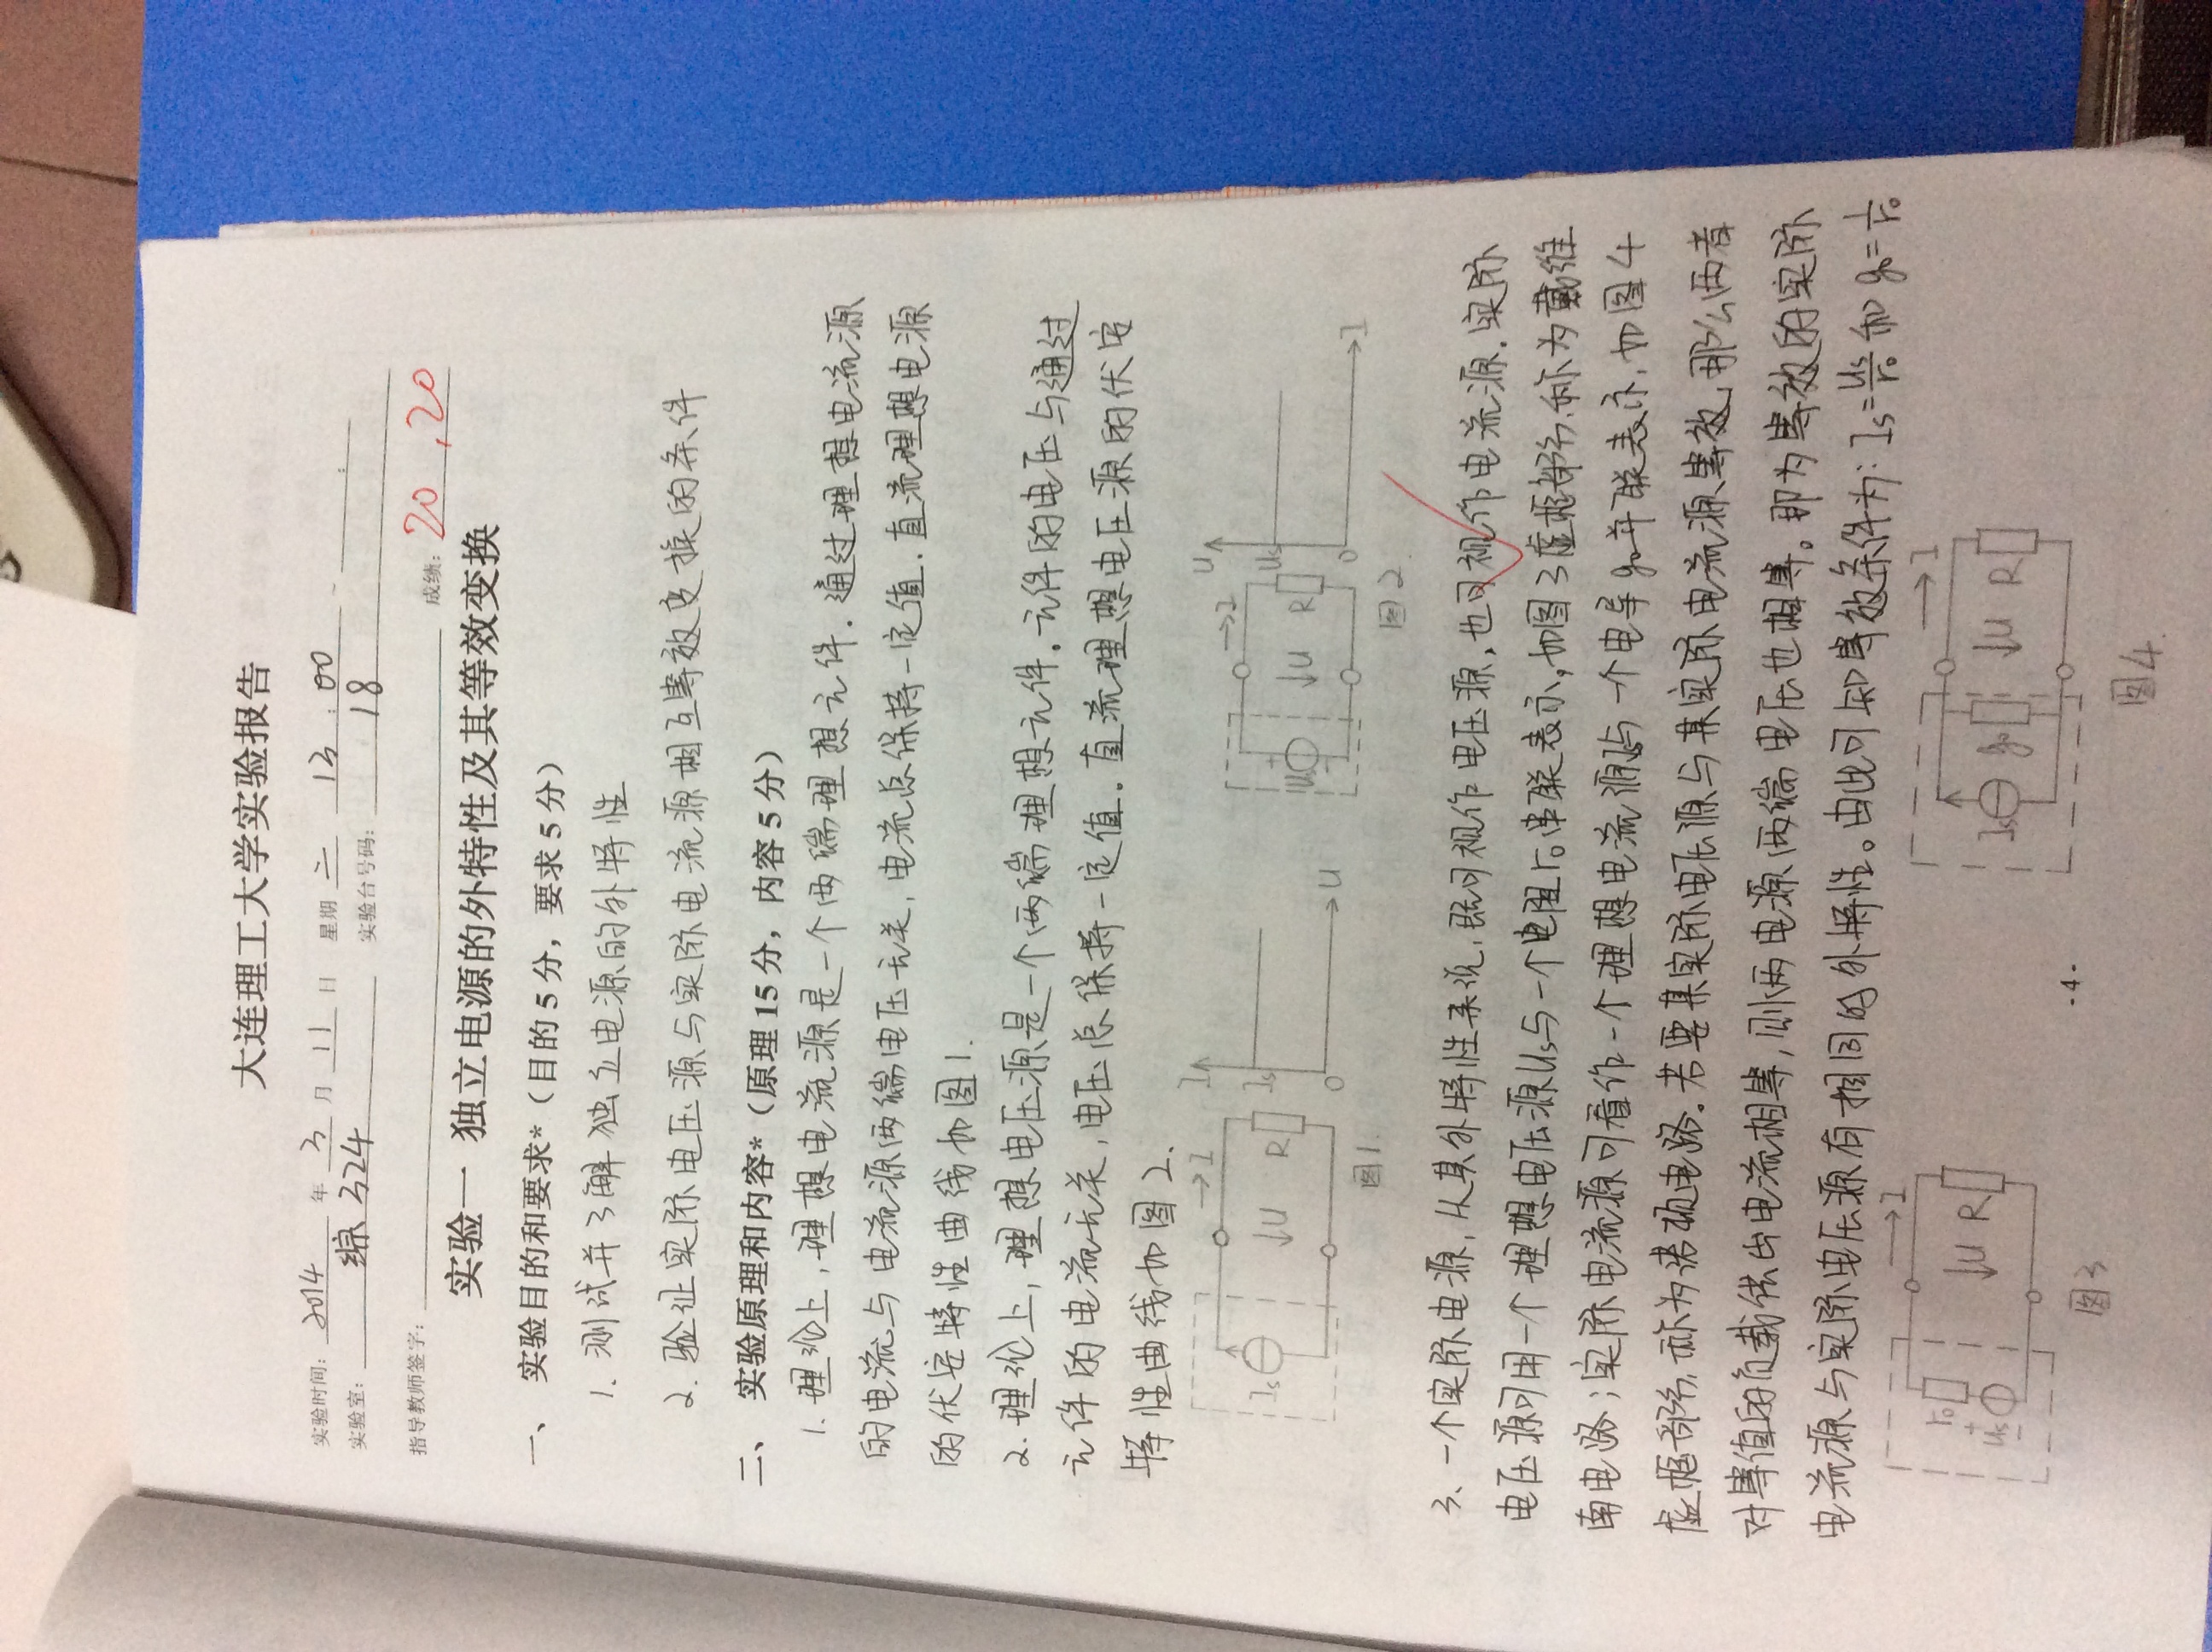 大连理工大学实验报告
实验时间: 2014 年 3 月 11 日 星期 二 13 : 00 - :
实验室: 综 324 实验台号码: 18
指导教师签字: 成绩: 20 , 20
实验一 独立电源的外特性及其等效变换
一、 实验目的和要求*（目的 5 分，要求 5 分）
1. 测试并了解独立电源的外特性
2. 验证实际电压源与实际电流源相互等效变换的条件
二、 实验原理和内容*（原理 15 分，内容 5 分）
1. 理论上, 理想电流源是一个两端理想元件. 通过理想电流源
的电流与电流源两端电压无关, 电流总保持一定值. 直流理想电源
的伏安特性曲线如图1.
2. 理论上, 理想电压源是一个两端理想元件. 元件的电压与通过
元件的电流无关, 电压总保持一定值. 直流理想电压源的伏安
特性曲线如图2.
Is →I ↓U R I Is O U
Us + - →I ↓U R U Us O I
图1.
图2.
3、一个实际电源, 从其外特性来说, 既可视作电压源, 也可视作电流源. 实际
电压源可用一个理想电压源Us与一个电阻r₀串联表示, 如图3虚框部分, 称为戴维
南电路; 实际电流源可看作一个理想电流源Is与一个电导g₀并联表示, 如图4
虚框部分, 称为诺顿电路. 若要某实际电压源与某实际电流源等效, 那么两者
对等值的负载供出电流相等, 则两电源两端电压也相等。即为等效的实际
电流源与实际电压源有相同的外特性。由此可知等效条件为: Is=Us/r₀ 和 g₀=1/r₀
r₀ + Us - →I ↓U R
Is g₀ →I ↓U R
图3
- 4 -
图4.